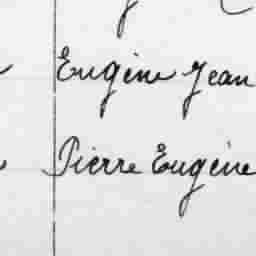 Eugène Jean
Pierre Eugène